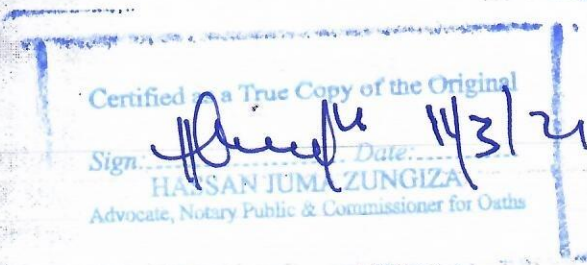 Certified as a True Copy of the Original
Sign: Date: 11/3/24
HASSAN JUMA ZUNGIZA
Advocate, Notary Public & Commissioner for Oaths